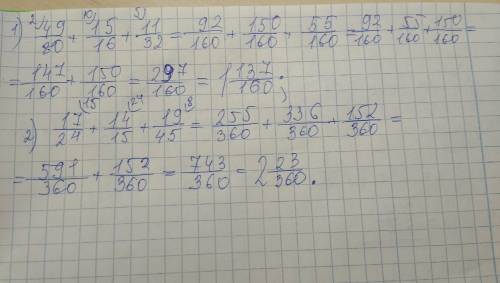 1) 49/20 + 15/16 + 11/32 = 92/160 + 150/160 + 55/160 = 92/160 + 55/160 + 150/160 =
= 147/160 + 150/160 = 297/160 = 1 137/160;
2) 17/24 + 14/15 + 19/45 = 255/360 + 336/360 + 152/360 =
= 591/360 + 152/360 = 743/360 = 2 23/360.